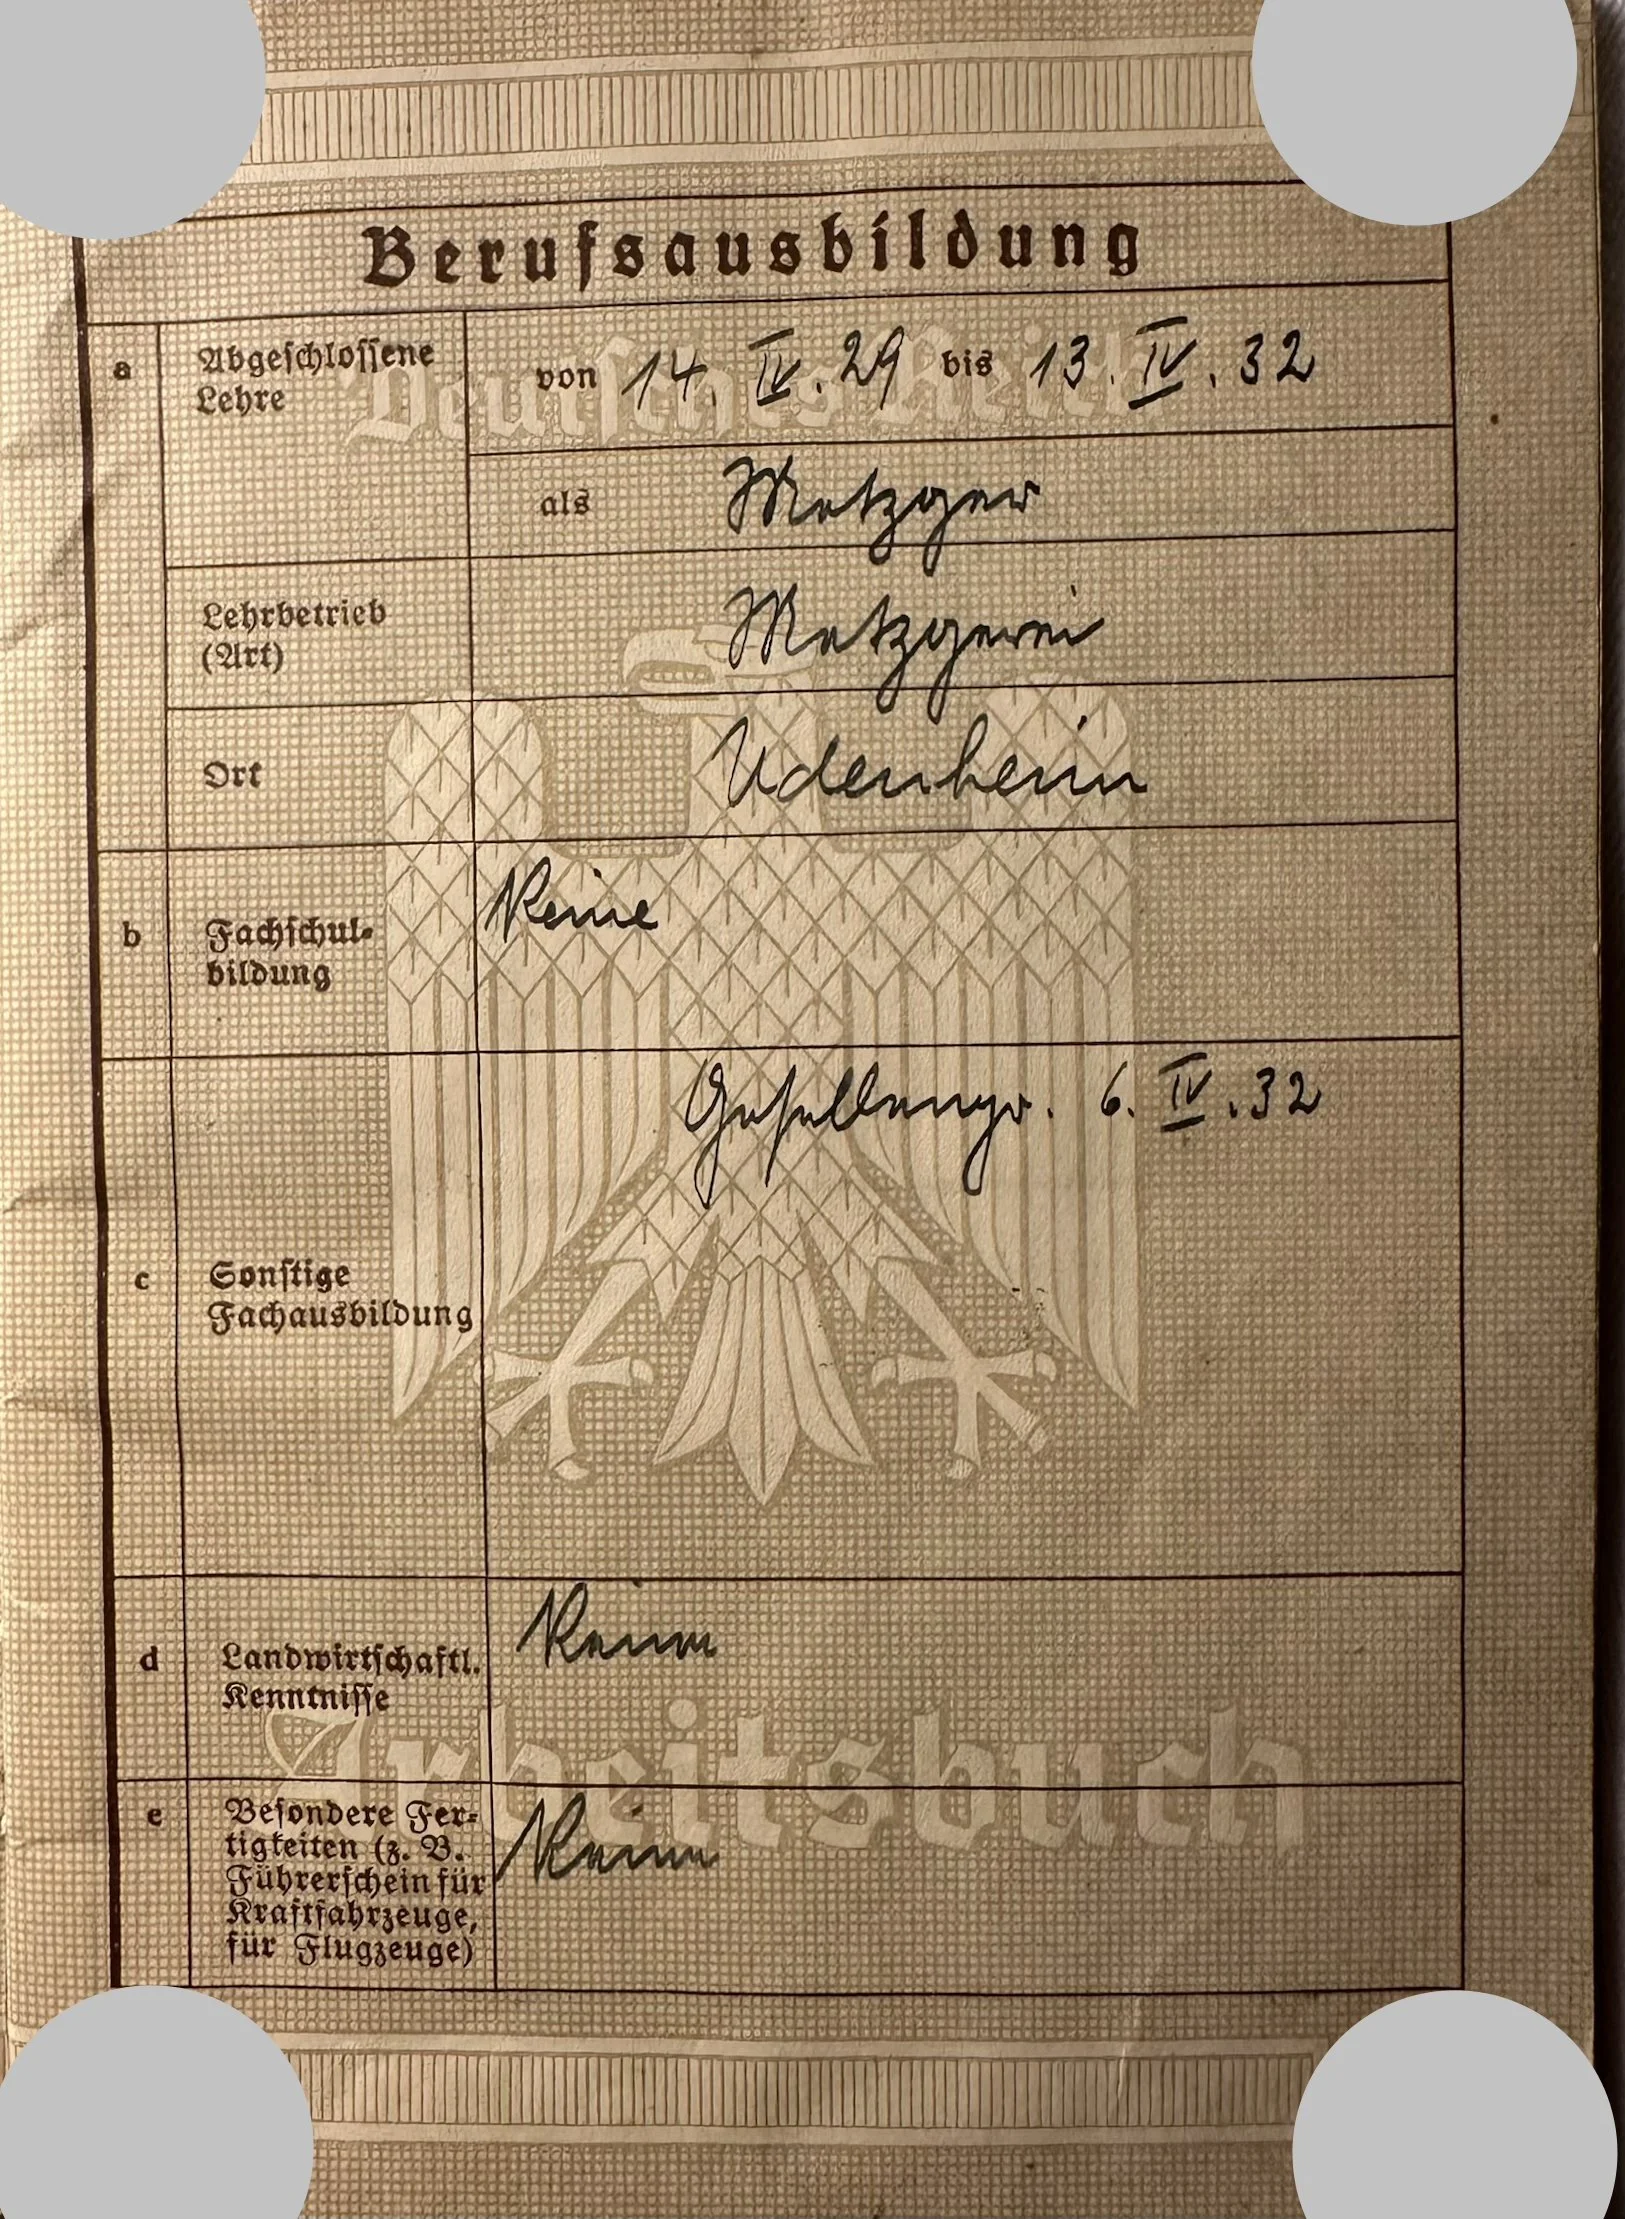 Berufsausbildung
a Abgeschlossene Lehre von 14. IV. 29 bis 13. IV. 32
als Metzger
Lehrbetrieb (Art) Metzgerei
Ort Udenheim
b Fachschul-bildung Keine
Gesellenpr. 6. IV. 32
c Sonstige Fachausbildung
d Landwirtschaftl. Kenntnisse Keine
e Besondere Fer-
tigkeiten (z. B. Keine
Führerschein für
Kraftfahrzeuge,
für Flugzeuge)
Deutsches Reich
Arbeitsbuch